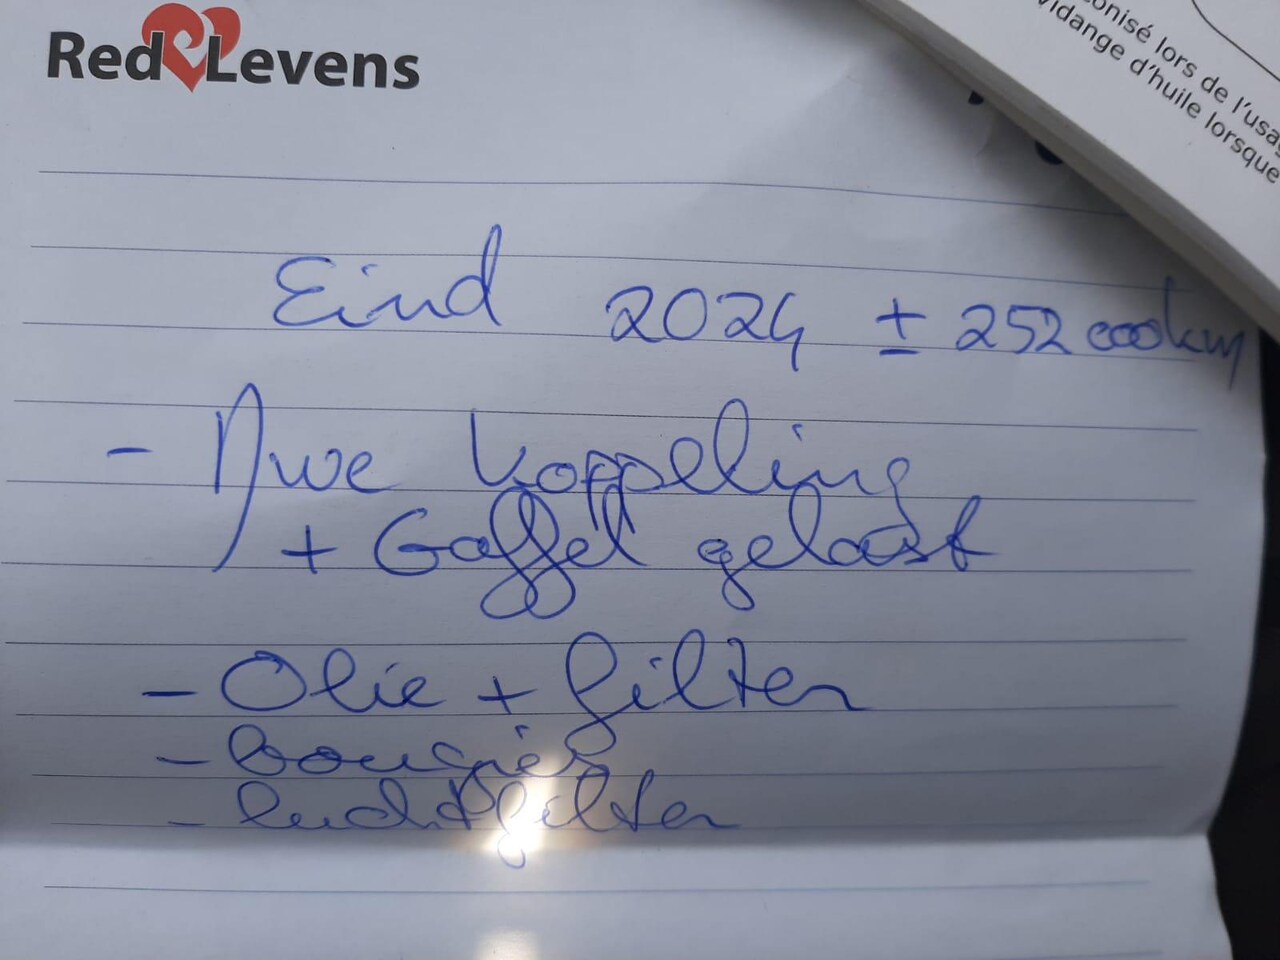 Red Levens
onisé lors de l'usa
vidange d'huile lorsque
Eind 2024 ± 252000km
- Nwe koppeling
+ Gaffel gelast
- Olie + filter
- bougies
- luchtfilter